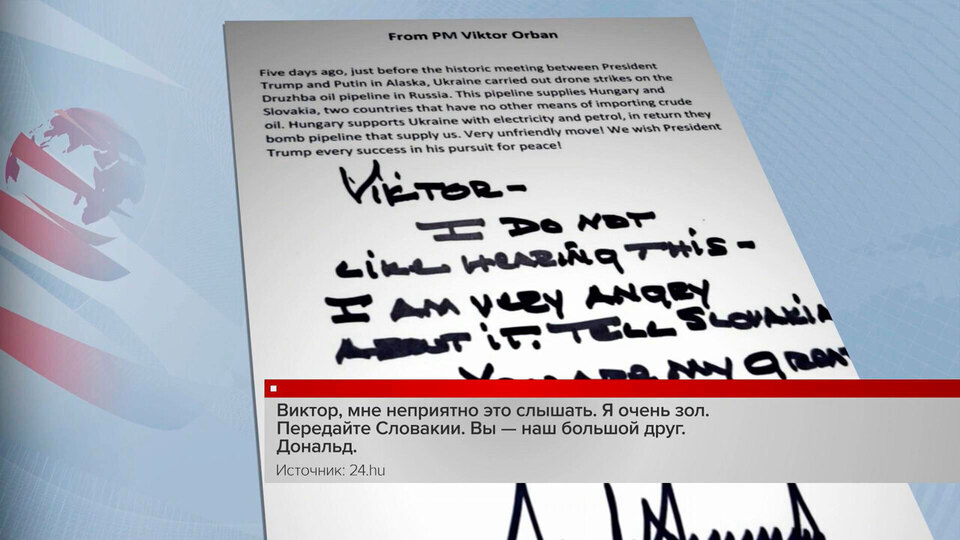 From PM Viktor Orban
Five days ago, just before the historic meeting between President
Trump and Putin in Alaska, Ukraine carried out drone strikes on the
Druzhba oil pipeline in Russia. This pipeline supplies Hungary and
Slovakia, two countries that have no other means of importing crude
oil. Hungary supports Ukraine with electricity and petrol, in return they
bomb pipeline that supply us. Very unfriendly move! We wish President
Trump every success in his pursuit for peace!
VIKTOR –
I DO NOT
LIKE HEARING THIS –
I AM VERY ANGRY
ABOUT IT. TELL SLOVAKIA
YOU ARE MY GREAT
Виктор, мне неприятно это слышать. Я очень зол.
Передайте Словакии. Вы — наш большой друг.
Дональд.
Источник: 24.hu